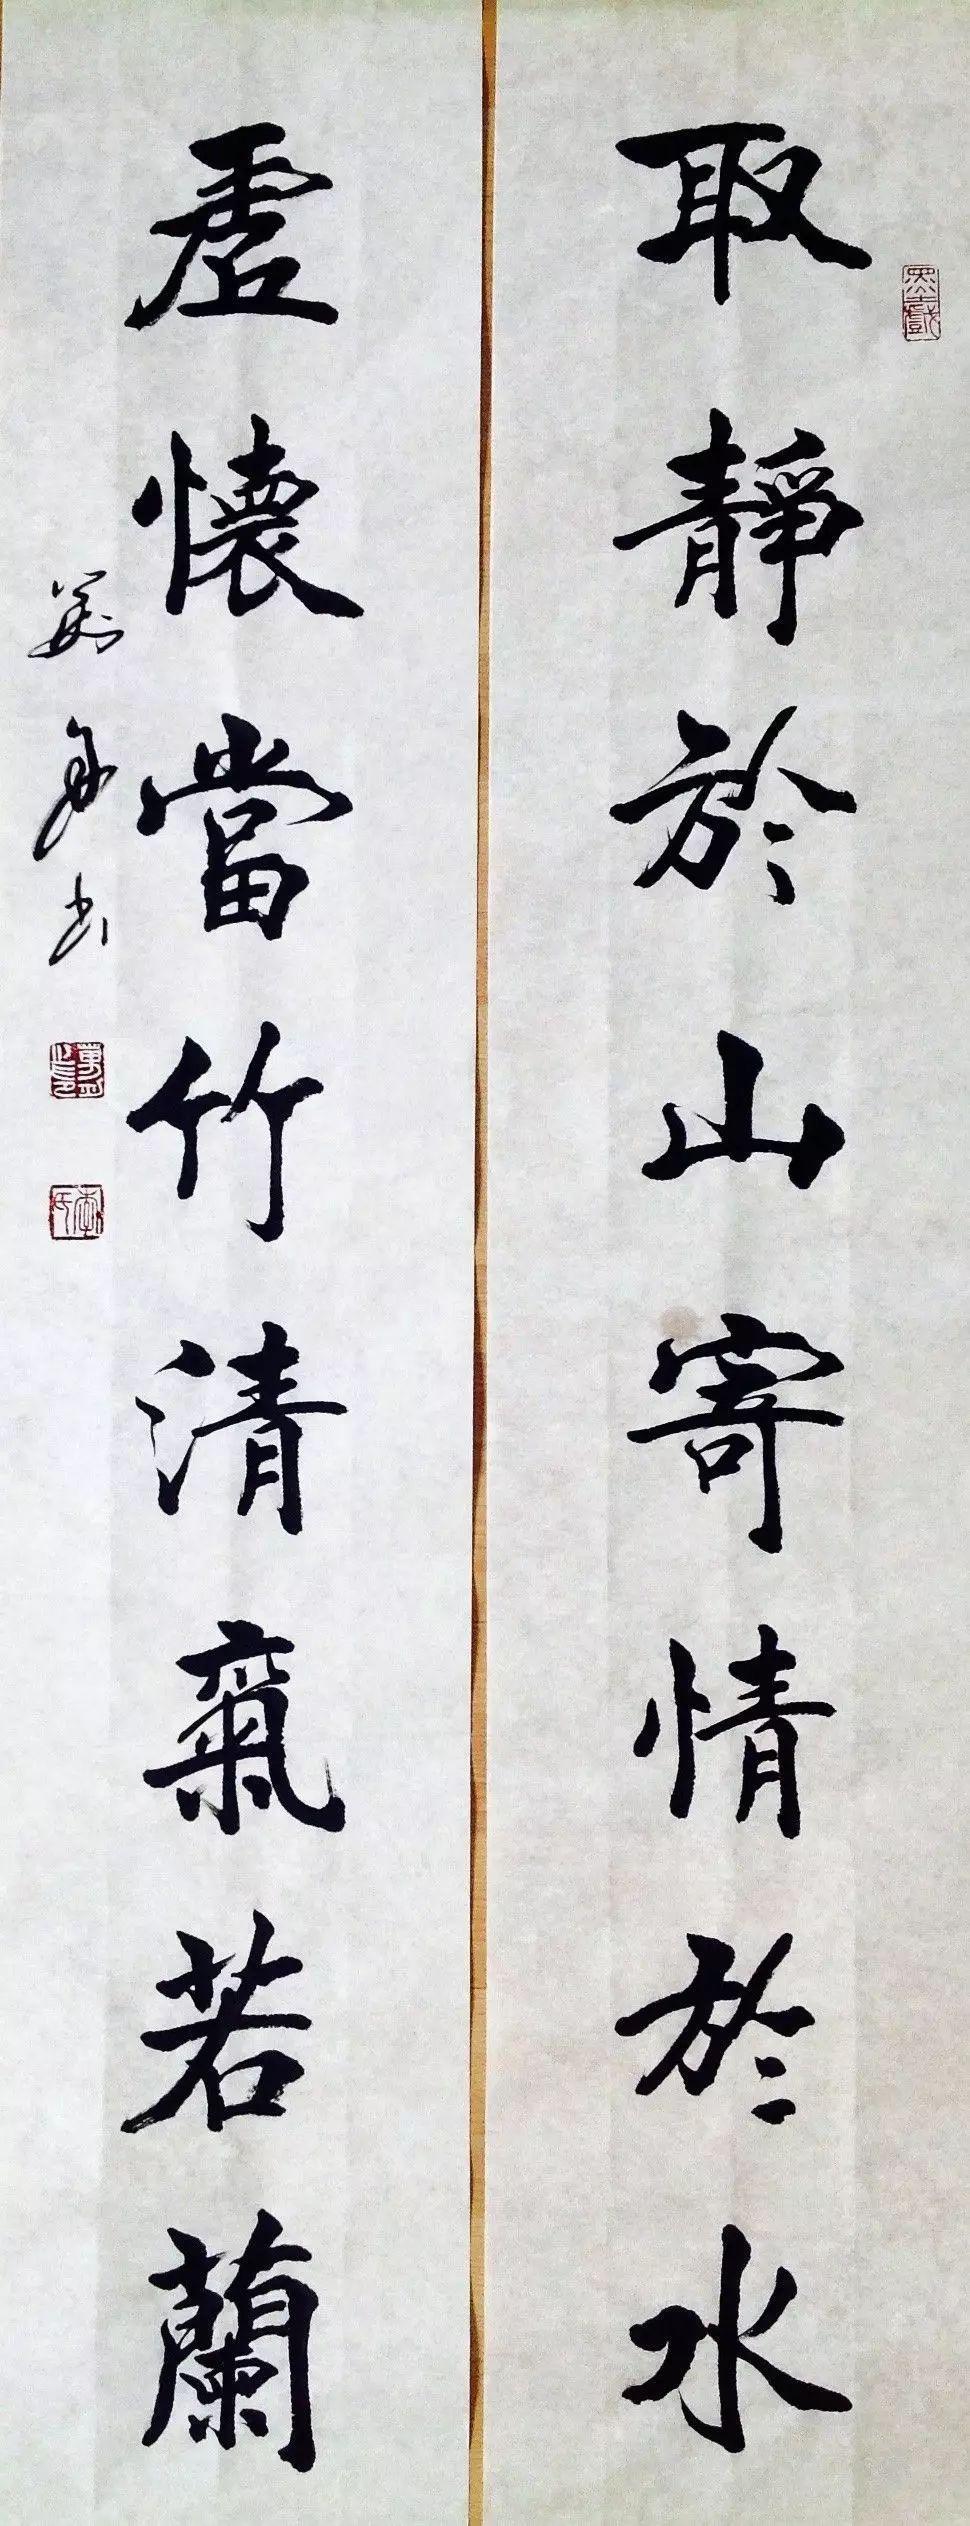 取靜於山寄情於水
虛懷當竹清氣若蘭